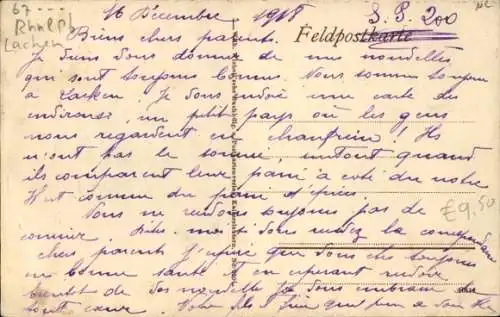 67
Rhnlpf
Lachen
16 Décembre 1918
S. P. 200
Feldpostkarte
Biens chers parents.
Je viens vous donner de mes nouvelles
qui sont toujours bonnes. Nous sommes toujours
a Lachen. Je vous envoie une carte des
environs, un petit pays où les gens
nous regardent en chanfrein! Ils
n'ont pas le sourire, surtout quand
ils comparent leur pain a coté du notre
tout comme du pain d'épices
Nous ne recevons toujours pas de
courrier. Dites-moi si vous recevez la correspondance
chers parents j'espère que vous etes toujours
en bonne santé et en espérant recevoir
bientot de vos nouvelles je vous embrasse de
tout cœur. Votre fils
€9,50